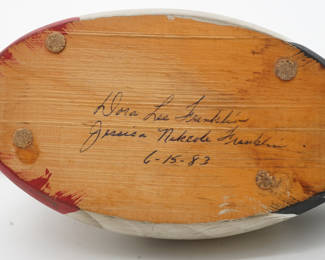 Dora Lee Franklin
Jessica Nikcole Franklin
6-15-83